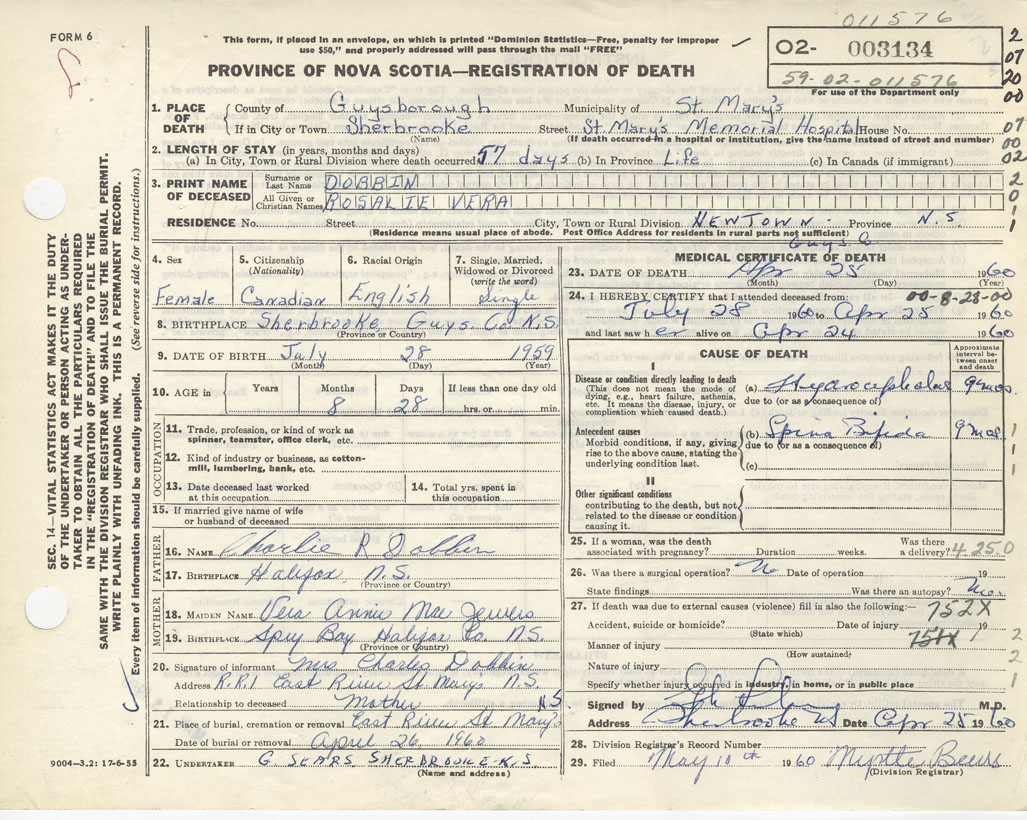 011576
FORM 6
This form, if placed in an envelope, on which is printed "Dominion Statistics—Free, penalty for improper
use $50," and properly addressed will pass through the mail "FREE"
02- 003134
59-02-011576
For use of the Department only
2
07
20
00
PROVINCE OF NOVA SCOTIA—REGISTRATION OF DEATH
1. PLACE OF DEATH
County of Guysborough Municipality of St. Mary's
If in City or Town Sherbrooke Street St. Mary's Memorial Hospital House No. 07
(Name) (If death occurred in a hospital or institution, give the name instead of street and number) 00
2. LENGTH OF STAY (in years, months and days)
(a) In City, Town or Rural Division where death occurred 57 days (b) In Province Life (c) In Canada (if immigrant) 02
3. PRINT NAME OF DECEASED
Surname or Last Name DOBBIN 2
All Given or Christian Names ROSALIE VERA 0
RESIDENCE No. Street City, Town or Rural Division NEWTOWN Province N.S. 1
(Residence means usual place of abode. Post Office Address for residents in rural parts not sufficient) 1
Guys. Co
4. Sex Female
5. Citizenship (Nationality) Canadian
6. Racial Origin English
7. Single, Married, Widowed or Divorced (write the word) Single
8. BIRTHPLACE Sherbrooke Guys. Co. N.S.
(Province or Country)
9. DATE OF BIRTH July 28 1959
(Month) (Day) (Year)
10. AGE in Years Months Days If less than one day old
8 28 hrs. or min.
OCCUPATION
11. Trade, profession, or kind of work as spinner, teamster, office clerk, etc.
12. Kind of industry or business, as cotton-mill, lumbering, bank, etc.
13. Date deceased last worked at this occupation
14. Total yrs. spent in this occupation
15. If married give name of wife or husband of deceased
FATHER
16. NAME Charlie R Dobbin
17. BIRTHPLACE Halifax N.S.
(Province or Country)
MOTHER
18. MAIDEN NAME Vera Annie Mae Jewers
19. BIRTHPLACE Spry Bay Halifax Co. N.S.
(Province or Country)
20. Signature of informant Mrs Charles Dobbin
Address R.R.1 East River St. Mary's N.S.
Relationship to deceased Mother
21. Place of burial, cremation or removal East River St Mary's N.S
Date of burial or removal April 26 1960
22. UNDERTAKER G. SEARS SHERBROOKE N.S.
(Name and address)
MEDICAL CERTIFICATE OF DEATH
23. DATE OF DEATH Apr 25 1960
(Month) (Day) (Year)
24. I HEREBY CERTIFY that I attended deceased from: 00-8-28-00
July 28 1960 to Apr 25 1960
and last saw her alive on Apr 24 1960
CAUSE OF DEATH
Approximate interval between onset and death
I
Disease or condition directly leading to death
(This does not mean the mode of dying, e.g., heart failure, asthenia, etc. It means the disease, injury, or complication which caused death.)
(a) Hydrocephalus 9 mos.
due to (or as a consequence of)
Antecedent causes
Morbid conditions, if any, giving rise to the above cause, stating the underlying condition last.
(b) Spina Bifida 9 mos
due to (or as a consequence of)
(c)
1
1
1
II
Other significant conditions
contributing to the death, but not related to the disease or condition causing it.
25. If a woman, was the death associated with pregnancy? Duration weeks. Was there a delivery? 4.25.0
26. Was there a surgical operation? No Date of operation 19
State findings Was there an autopsy? No.
27. If death was due to external causes (violence) fill in also the following:— 752X
Accident, suicide or homicide? Date of injury 19
(State which) 751X
Manner of injury 2
(How sustained)
Nature of injury 2
Specify whether injury occurred in industry, in home, or in public place 1
Signed by M.D.
Address Sherbrooke NS Date Apr 25 1960
28. Division Registrar's Record Number
29. Filed May 10th 1960 Myrtle
(Division Registrar)
9004—3.2: 17-6-55
SEC. 14—VITAL STATISTICS ACT MAKES IT THE DUTY
OF THE UNDERTAKER OR PERSON ACTING AS UNDER-
TAKER TO OBTAIN ALL THE PARTICULARS REQUIRED
IN THE "REGISTRATION OF DEATH" AND TO FILE THE
SAME WITH THE DIVISION REGISTRAR WHO SHALL ISSUE THE BURIAL PERMIT.
WRITE PLAINLY WITH UNFADING INK. THIS IS A PERMANENT RECORD.
Every item of information should be carefully supplied. (See reverse side for instructions.)